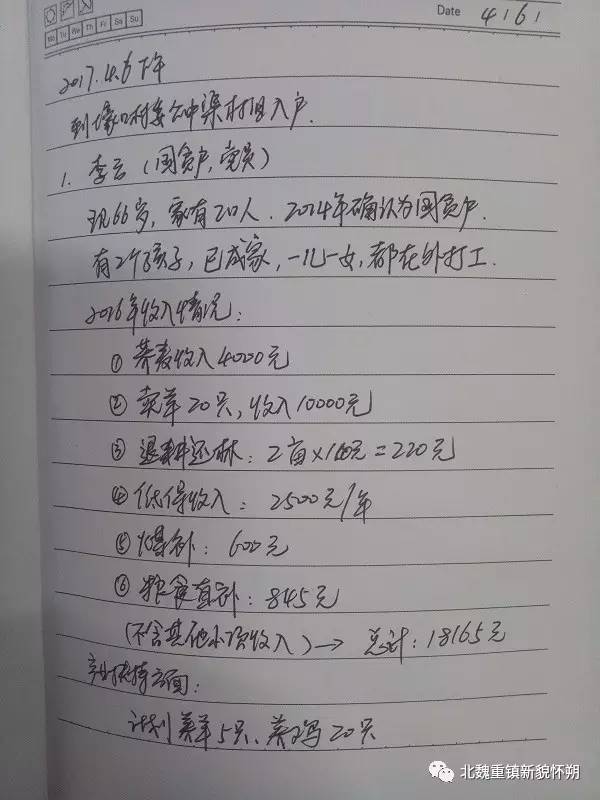 Date 4/6/
Mo Tu We Th Fr Sa Su
2017.4.6下午
到壕口村委会中渠村组入户.
1. 李云(国贫户,党员)
现66岁,家有2口人.2014年确认为国贫户.
有2个孩子,已成家,一儿一女,都在外打工.
2016年收入情况:
① 荞麦收入4000元
② 卖羊20只,收入10000元
③ 退耕还林:2亩×110元=220元
④ 低保收入:2500元/年
⑤ 煤补:600元
⑥ 粮食直补:845元
(不含其他小项收入)→ 总计:18165元
产业扶持方面:
计划养羊5只、养鸡20只
北魏重镇新貌怀朔